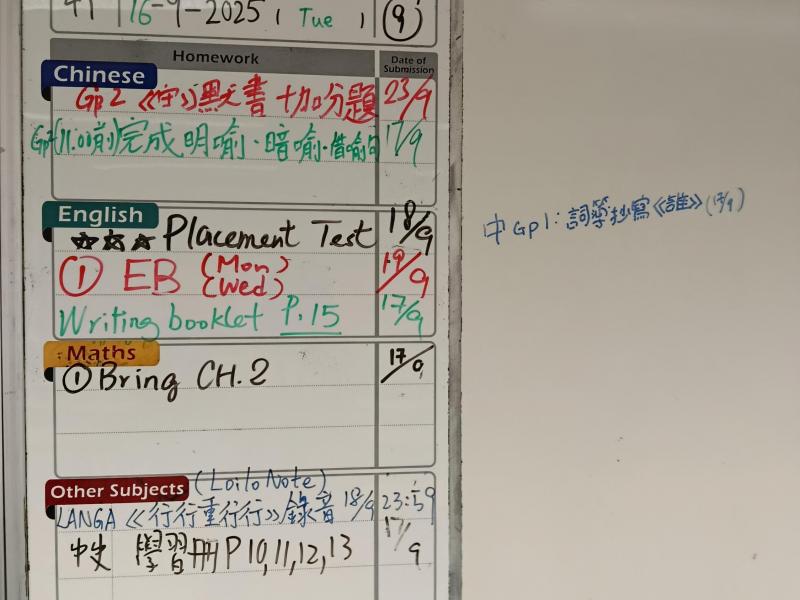 16-9-2025 Tue 9
Homework
Date of Submission
Chinese
Gp2 《守》默書 + 加分題 23/9
(11:00前)完成明喻·暗喻·借喻句 17/9
English
☆☆☆ Placement Test 18/9
① EB (Mon) (Wed) 19/9
Writing booklet P.15 17/9
Maths
① Bring CH.2 17/9
Other Subjects
(LoiloNote)
LANGA 《行行重行行》錄音 18/9 23:59
中史 學習冊 P10,11,12,13 17/9
中 Gp1: 詞簿抄寫《誰》(17/9)